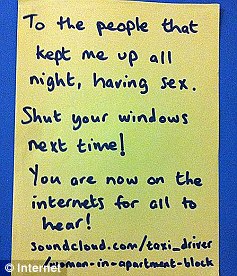 To the people that
kept me up all
night, having sex.
Shut your windows
next time!
You are now on the
internets for all to
hear!
soundcloud.com/taxi_driver
/woman-in-apartment-block
© Internet